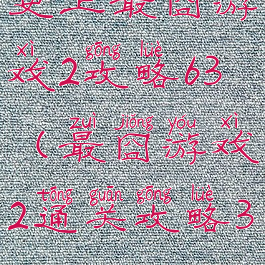 史上最囧游
xì gōng lüè
戏2攻略63
zuì jiǒng yóu xì
(最囧游戏
tōng guān gōng lüè
2通关攻略3